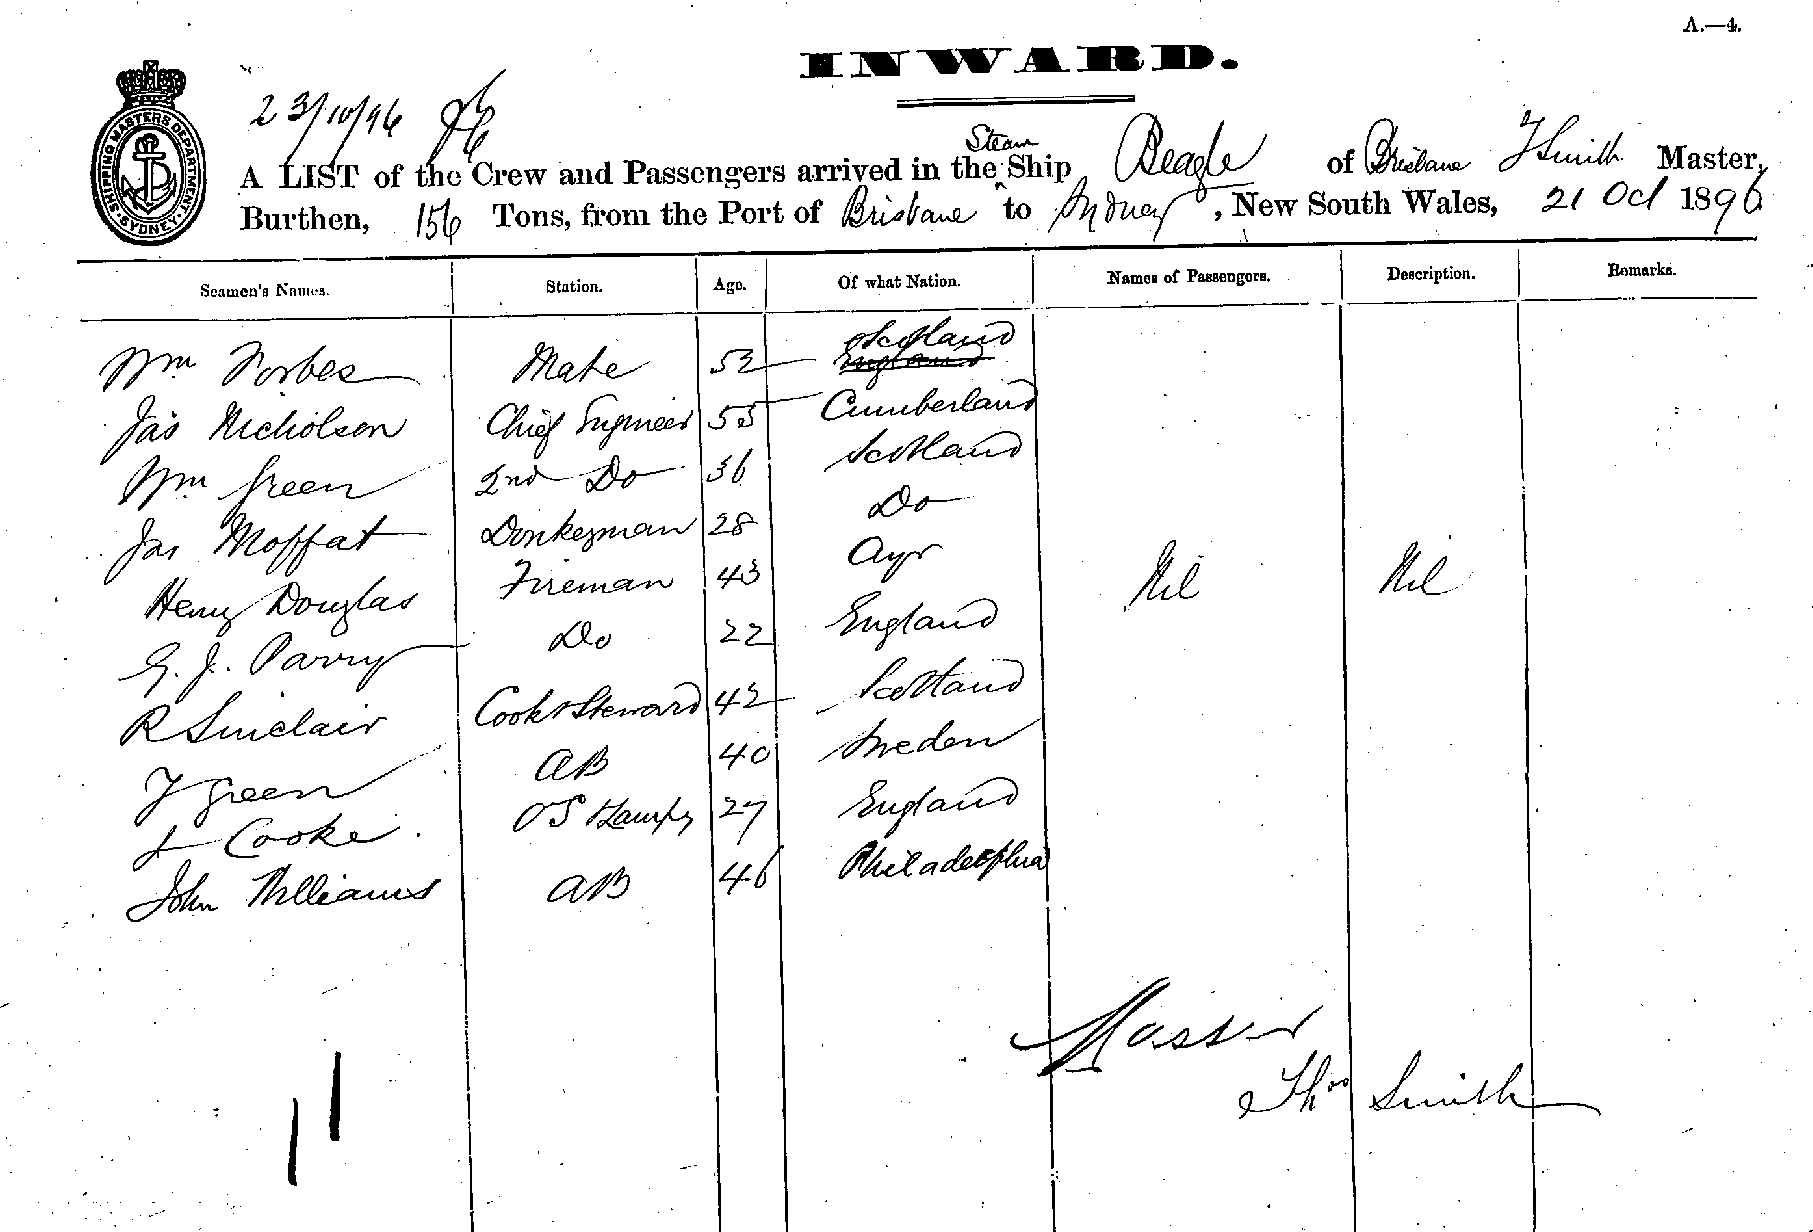 A.—4.
INWARD.
SHIPPING MASTERS DEPARTMENT. SYDNEY.
23/10/96
Steam
A LIST of the Crew and Passengers arrived in the ^ Ship Beagle of Brisbane T Smith Master,
Burthen, 156 Tons, from the Port of Brisbane to Sydney, New South Wales, 21 Oct 1896
Seamen's Names. Station. Age. Of what Nation. Names of Passengers. Description. Remarks.
Wm Forbes Mate 52 England Scotland
Jas Nicholson Chief Engineer 55 Cumberland
Wm Green 2nd Do 36 Scotland
Jas Moffat Donkeyman 28 Do
Henry Douglas Fireman 43 Ayr Nil Nil
G. J. Parry Do 22 England
R Sinclair Cook & Steward 42 Scotland
J Green AB 40 Sweden
Cooke OS & Lampy 27 England
John Williams AB 46 Philadelphia
Master
Thos Smith
11